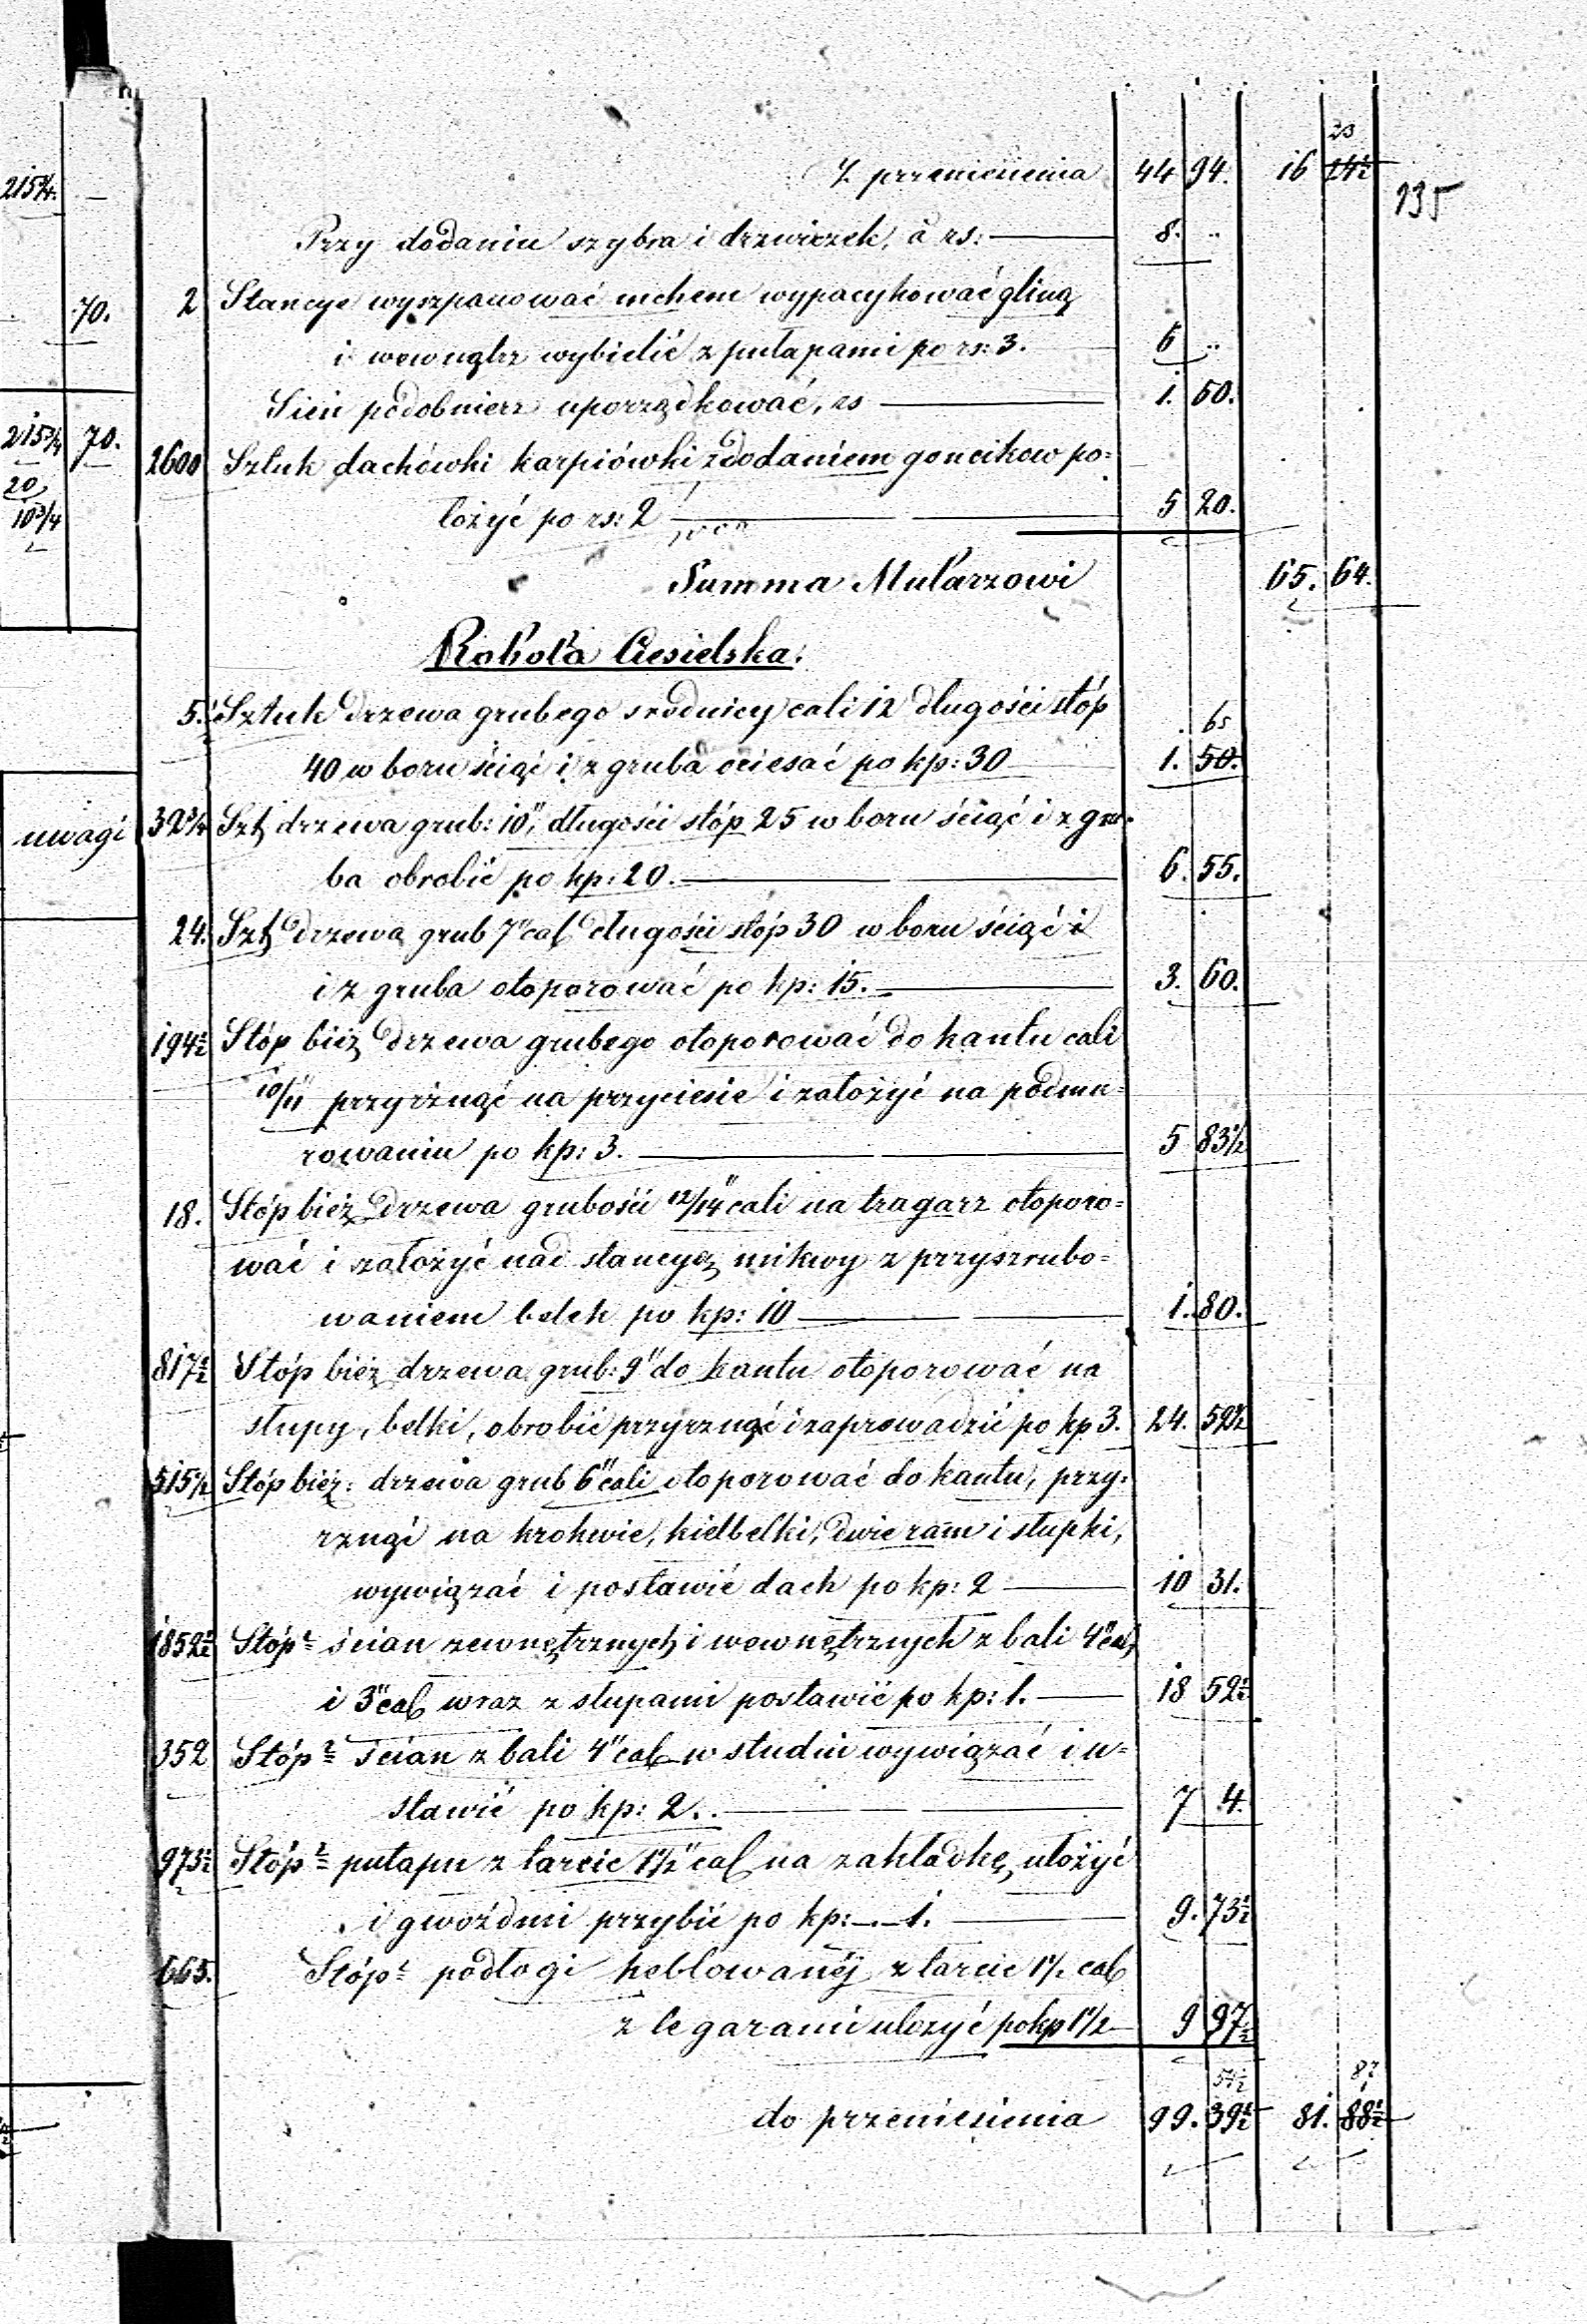 215¾. —
70.
215¾ 70.
20
10¾
uwagi
135
Z przeniesienia 44 94. 16 23 24½
Przy dodaniu szybra i drzwiczek, à rs: — 8. ..
2 Stancye wyszpanować mchem wypacykować gliną
i wewnątrz wybielić z pułapami po rs: 3. 6 ..
Sień podobnież uporządkować, rs — 1. 50.
2600 Sztuk dachówki karpiówki z dodaniem goncikow po=
łożyć po rs: 2 — 5 20.
1000
Summa Mularzowi 65. 64.
Robota Ciesielska.
5. Sztuk drzewa grubego srednicy cali 12 długości stóp
40 w boru ściąć i z gruba ociesać po kp: 30 1. 65 50.
32¾ Szt drzewa grub: 10", długości stóp 25 w boru ściąć i z gru=
ba obrobić po kp: 20. — 6. 55.
24. Szt drzewa grub 7" cal długości stóp 30 w boru ściąć i
i z gruba otoporować po kp: 15. — 3. 60.
194½ Stóp bież drzewa grubego otoporować do kantu cali
10/11" przyrznąć na przyciesie i założyć na podmu=
rowaniu po kp: 3. — 5 83½
18. Stóp bież drzewa grubości 12/14" cali na tragarz otoporo=
wać i założyć nad stancyą mikwy z przyszrubo=
waniem belek po kp: 10 — 1. 80.
817½ Stóp bież drzewa grub: 9" do kantu otoporować na
słupy, belki, obrobić przyrznąć i zaprowadzić po kp 3. 24. 52½
515½ Stóp bież: drzewa grub 6" cali otoporować do kantu, przy=
rznąć na krokwie, kielbelki, dwie ram i słupki,
wywiązać i postawić dach po kp: 2 — 10 31.
1852½ Stóp² ścian zewnętrznych i wewnętrznych z bali 4" cal
i 3" cal wraz z słupami postawić po kp: 1. — 18 52½
352 Stóp² ścian z bali 4" cal w studni wywiązać i u=
stawić po kp: 2. — 7 4.
973½ Stóp² pułapu z tarcic 1½" cal na zakładkę ułożyć
i gwoździmi przybić po kp: —. 1. — 9. 73½
665. Stóp² podłogi heblowanéj z tarcic 1½ cal
z legarami ułożyć po kp 1½ — 9 97½
do przeniesienia 99. 54½ 39½ 81. 87 88½